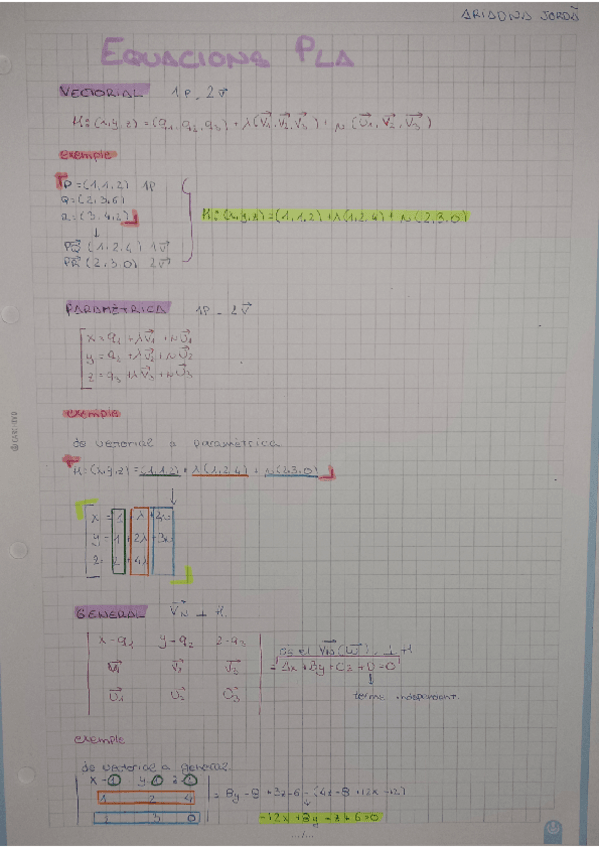 ARIADNA JORDÀ
EQUACIONS PLA
VECTORIAL 1P - 2v⃗
π: (x,y,z) = (q₁, q₂, q₃) + λ(v⃗₁, v⃗₂, v⃗₃) + μ(u⃗₁, v⃗₂, v⃗₃)
exemple
P = (1,1,2) 1P
Q = (2,3,6)
R = (3,4,2)
↓
PQ⃗ (1,2,4) 1v⃗
PR⃗ (2,3,0) 2v⃗
π: (x,y,z) = (1,1,2) + λ(1,2,4) + μ(2,3,0)
PARAMÈTRICA 1P - 2v⃗
x = q₁ + λv⃗₁ + μu⃗₁
y = q₂ + λv⃗₂ + μu⃗₂
z = q₃ + λv⃗₃ + μu⃗₃
exemple
de vectorial a paramètrica
π: (x,y,z) = (1,1,2) + λ(1,2,4) + μ(2,3,0)
↓
x = 1 + λ + 2μ
y = 1 + 2λ + 3μ
z = 2 + 4λ
GENERAL v⃗N ⊥ π
x-q₁ y-q₂ z-q₃
v⃗₁ v⃗₂ v⃗₃
u⃗₁ u⃗₂ u⃗₃
és el VN⃗ (w⃗) ⊥ π
= Ax + By + Cz + D = 0
↓
terme independent.
exemple
de vectorial a general
x - 1 y - 1 z -
1 2 4
2 3 0
= 8y - 8 + 3z - 6 - (4z - 8 + 12x - 12)
-12x + 8y - z + 6 = 0
.../...